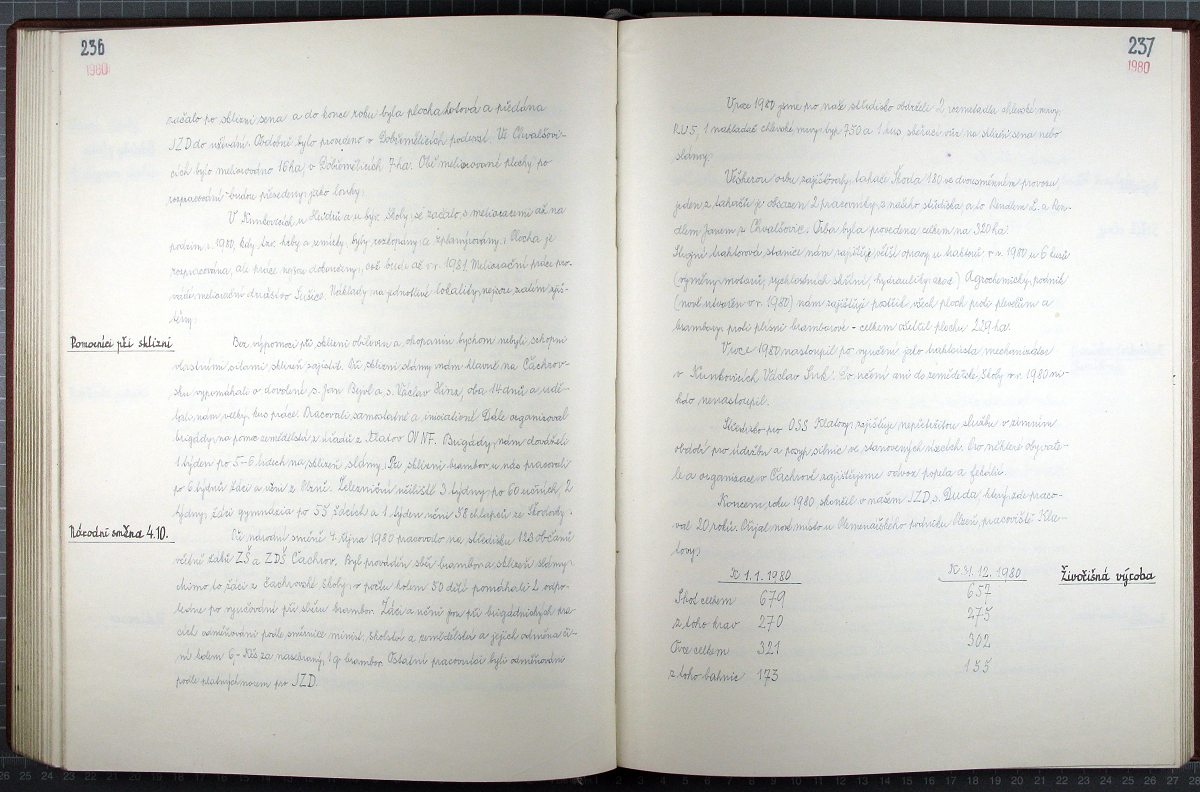 236
1980
začalo po sklizni sena a do konce roku byla plocha hotová a předána
JZD do užívání. Obdobně bylo provedeno v Dobřeměřicích podlesí. Ve Chvalšovi-
cích bylo meliorováno 16 ha, v Dobřeměřicích 7 ha. Obě meliorované plochy po
rozpracování budou převedeny jako louky.
V Kunkovicích u Hvízdů a u býv. školy, se začalo s melioracemi až na
podzim r. 1980, kdy tzv. hráby a remízky, byly rozkopány a zplanýrovány. Plocha je
rozpracována, ale práce nejsou dokončeny, což bude až v r. 1981. Meliorační práce pro-
vádí meliorační družstvo Sušice. Náklady na jednotlivé lokality, nejsou zatím zjiš-
těny.
Pomocníci při sklizni
Bez výpomoci při sklizni obilovin a okopanin bychom nebyli schopni
vlastními silami sklizeň zajistit. Při sklizni slámy nám hlavně na Čachrov-
sku vypomáhali o dovolení s. Jan a s. Václav oba 14 dnů a udě-
lali nám velký kus práce. Pracovali samostatně a iniciativně. Dále organizoval
brigády, na pomoc zemědělství z Klatov ONV NF. Brigády, nám dováželi
1 týden po 5-6 lidech na sklizeň slámy. Při sklizni brambor u nás pracovali
po 6 týdnů žáci a učni z Plzně. Železniční učiliště 3 týdny, po 60 učních, 2
týdny, žáci gymnázia po 55 žácích a 1 týden učni 58 chlapců ze Škodovky.
Národní směna 4.10.
Při národní směně 4. října 1980 pracovalo na středisku 123 občanů
včetně žáků ZŠ a ZDŠ Čachrov. Byl prováděn sběr brambor a sklizeň slámy,
mimo to žáci z Čachrovské školy, v počtu kolem 50 dětí pomáhali 2 odpo-
ledne po vyučování při sběru brambor. Žáci a učni jsou při brigádnických pra-
cích odměňováni podle směrnice minist. školství a zemědělství a jejich odměna či-
ní kolem 6,- Kčs za nasebraný 1 q brambor. Ostatní pracovníci byli odměňováni
podle platných norem pro JZD.
237
1980
V roce 1980 jsme pro naše středisko obdrželi 2 rozmetadla chlévské mrvy,
RUS, 1 nakladač chlévské mrvy, typ 750 a 1 kus sběrací vůz na sklizeň sena nebo
slámy.
Veškerou orbu zajišťovaly, tahače Škoda 180 ve dvousměnném provozu
jeden z tahačů je obsazen 2 pracovníky, z našeho střediska a to Rendlem L. a Ren-
dlem Janem z Chvalšovic. Orba byla provedena celkem na 320 ha.
Strojní traktorová stanice nám zajišťuje větší opravy u traktorů v r. 1980 u 6 kusů
(výměny, motorů, rychlostních skříní, hydrauliky, apod.) Agrochemický, podnik
(nově utvořen v r. 1980) nám zajišťuje postřik všech ploch proti plevelům a
brambory, proti plísni bramborové - celkem ošetřil plochu 229 ha.
V roce 1980 nastoupil po vyučení jako traktorista mechanizátor
v Kunkovicích Václav Suk. Do učení ani do zemědělské školy v r. 1980 ni-
kdo nenastoupil.
Středisko pro OSS Klatovy, zajišťuje nepřetržitou službu v zimním
období pro údržbu a posyp silnic ve stanovených úsecích. Pro některé obyvate-
le a organizace v Čachrově zajišťujeme odvoz popela a fekálií.
Koncem roku 1980 skončil v našem JZD s. Duda který zde praco-
val 20 roků. Přijal nové místo u Kamenářského podniku Plzeň, pracoviště Kla-
tovy.
K 1.1.1980 K 31.12.1980
Živočišná výroba
Skot celkem 679 657
z toho krav 270 275
Ovce celkem 321 302
z toho bahnic 173 155